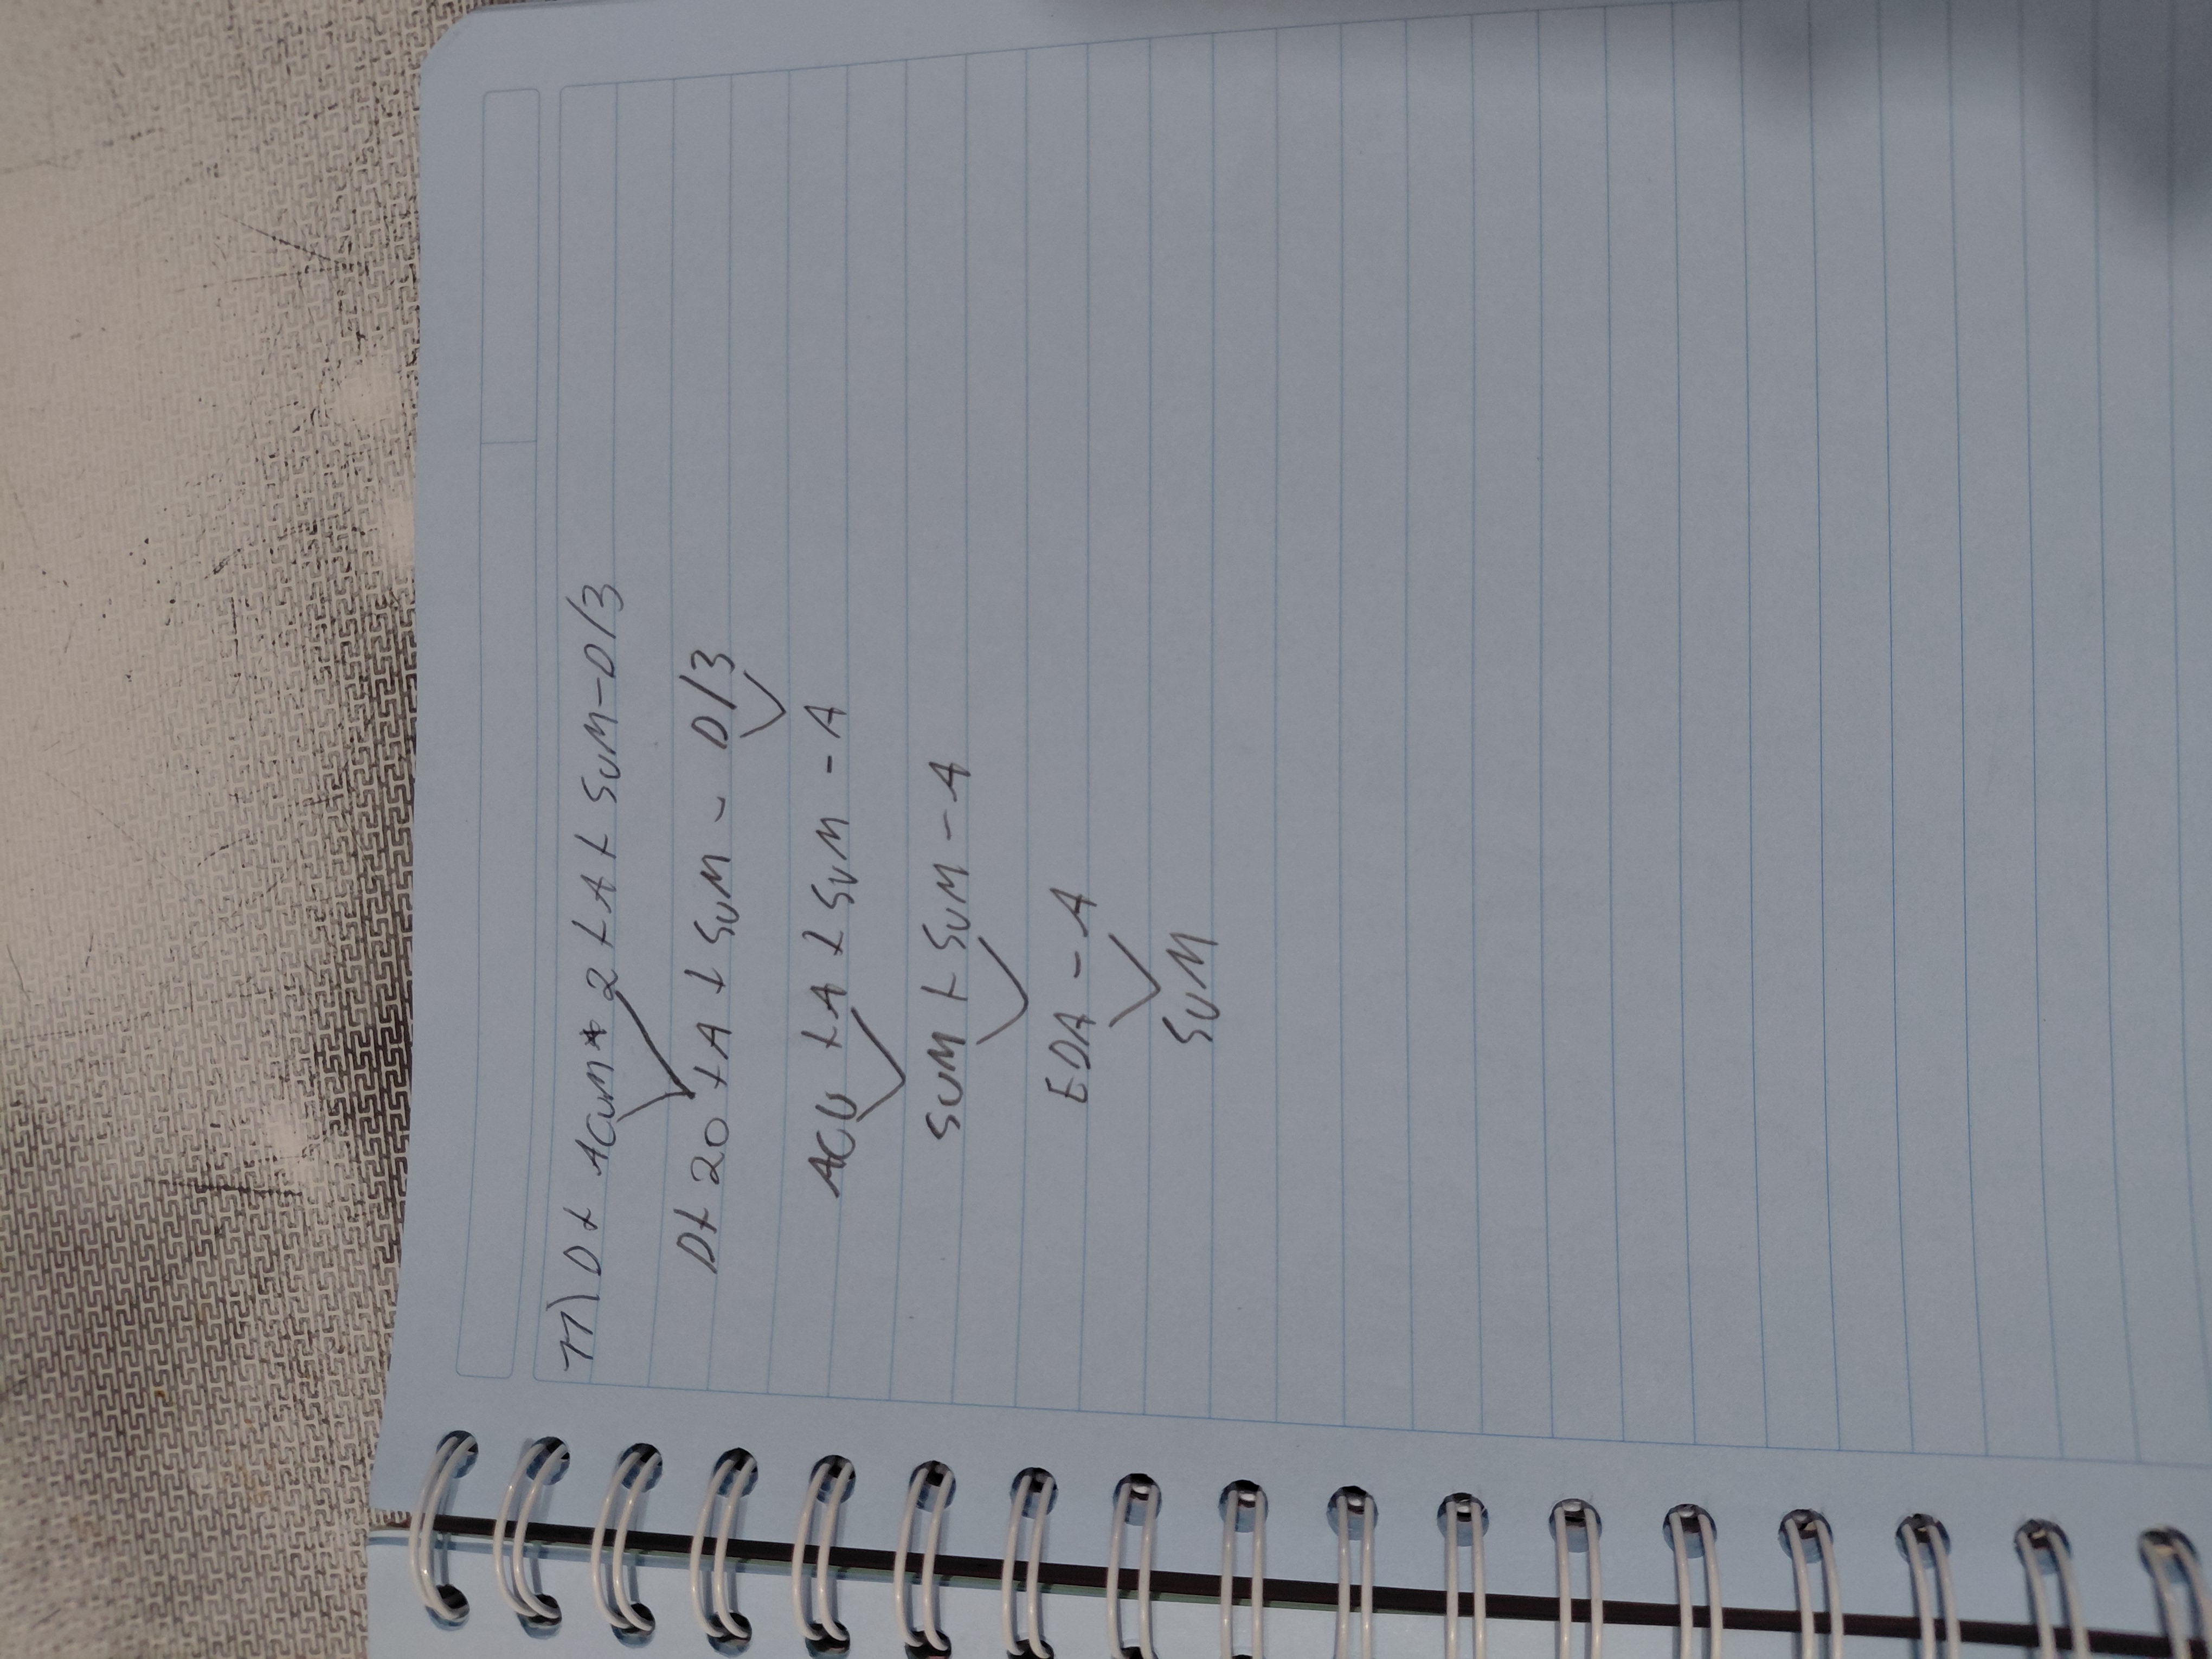 77) D + ACUM * 2 + A + SUM - D/3
D + 20 + A + SUM - D/3
ACU + A + SUM - A
SUM + SUM - A
EDA - A
SUM